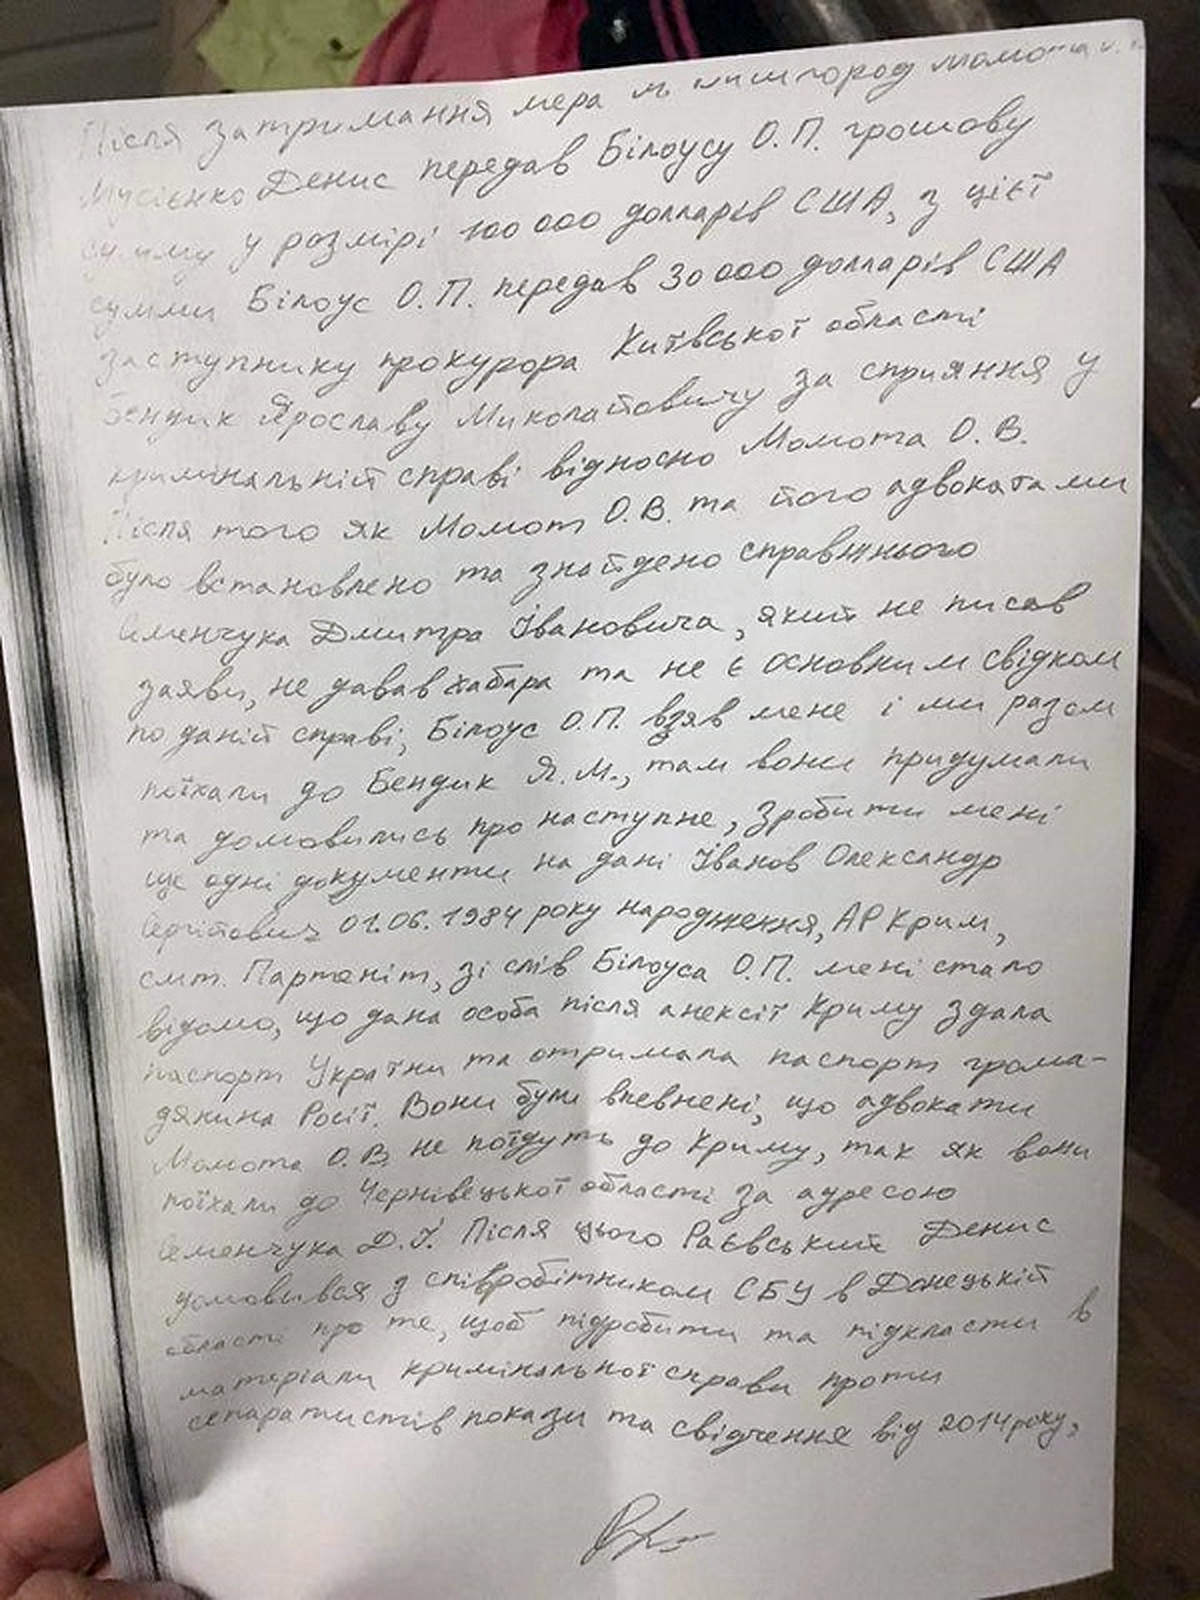 Після затримання мера м. Вишгород Момота
Мусієнко Денис передав Білоусу О.П. грошову
сумму у розмірі 100 000 долларів США, з цієї
сумми Білоус О.П. передав 30 000 долларів США
заступнику прокурора Київської області
Бендик Ярославу Миколайовичу за сприяння у
кримінальній справі відносно Момота О.В.
Після того як Момот О.В. та його адвокатами
було встановлено та знайдено справжнього
Семенчука Дмитра Івановича, який не писав
заяви, не давав хабара та не є основним свідком
по даній справі, Білоус О.П. взяв мене і ми разом
поїхали до Бендик Я.М., там вони придумали
та домовились про наступне, зробити мені
ще одні документи на дані Іванов Олександр
Сергійович 01.06.1984 року народження, АР Крим,
смт. Партеніт, зі слів Білоуса О.П. мені стало
відомо, що дана особа після анексії Криму здала
паспорт України та отримала паспорт грома-
дянина Росії. Вони були впевнені, що адвокати
Момота О.В. не поїдуть до Криму, так як вони
поїхали до Чернівецької області за адресою
Семенчука Д.І. Після цього Раєвський Денис
домовився з співробітником СБУ в Донецькій
області про те, щоб підробити та підкласти в
матеріали кримінальної справи проти
сепаратистів покази та свідчення від 2014 року,